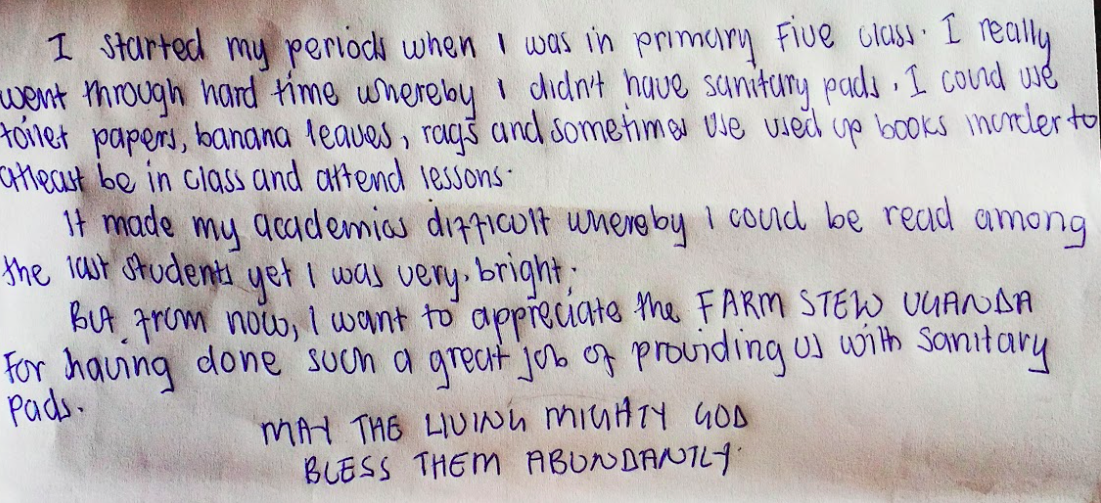 I started my periods when I was in primary Five class. I really
went through hard time whereby I didn't have sanitary pads. I could use
toilet papers, banana leaves, rags and sometimes use used up books inorder to
atleast be in class and attend lessons.
It made my academics difficult whereby I could be read among
the last students yet I was very bright.
But from now, I want to appreciate the FARM STEW UGANDA
For having done such a great job of providing us with Sanitary
Pads.
MAY THE LIVING MIGHTY GOD
BLESS THEM ABUNDANTLY.